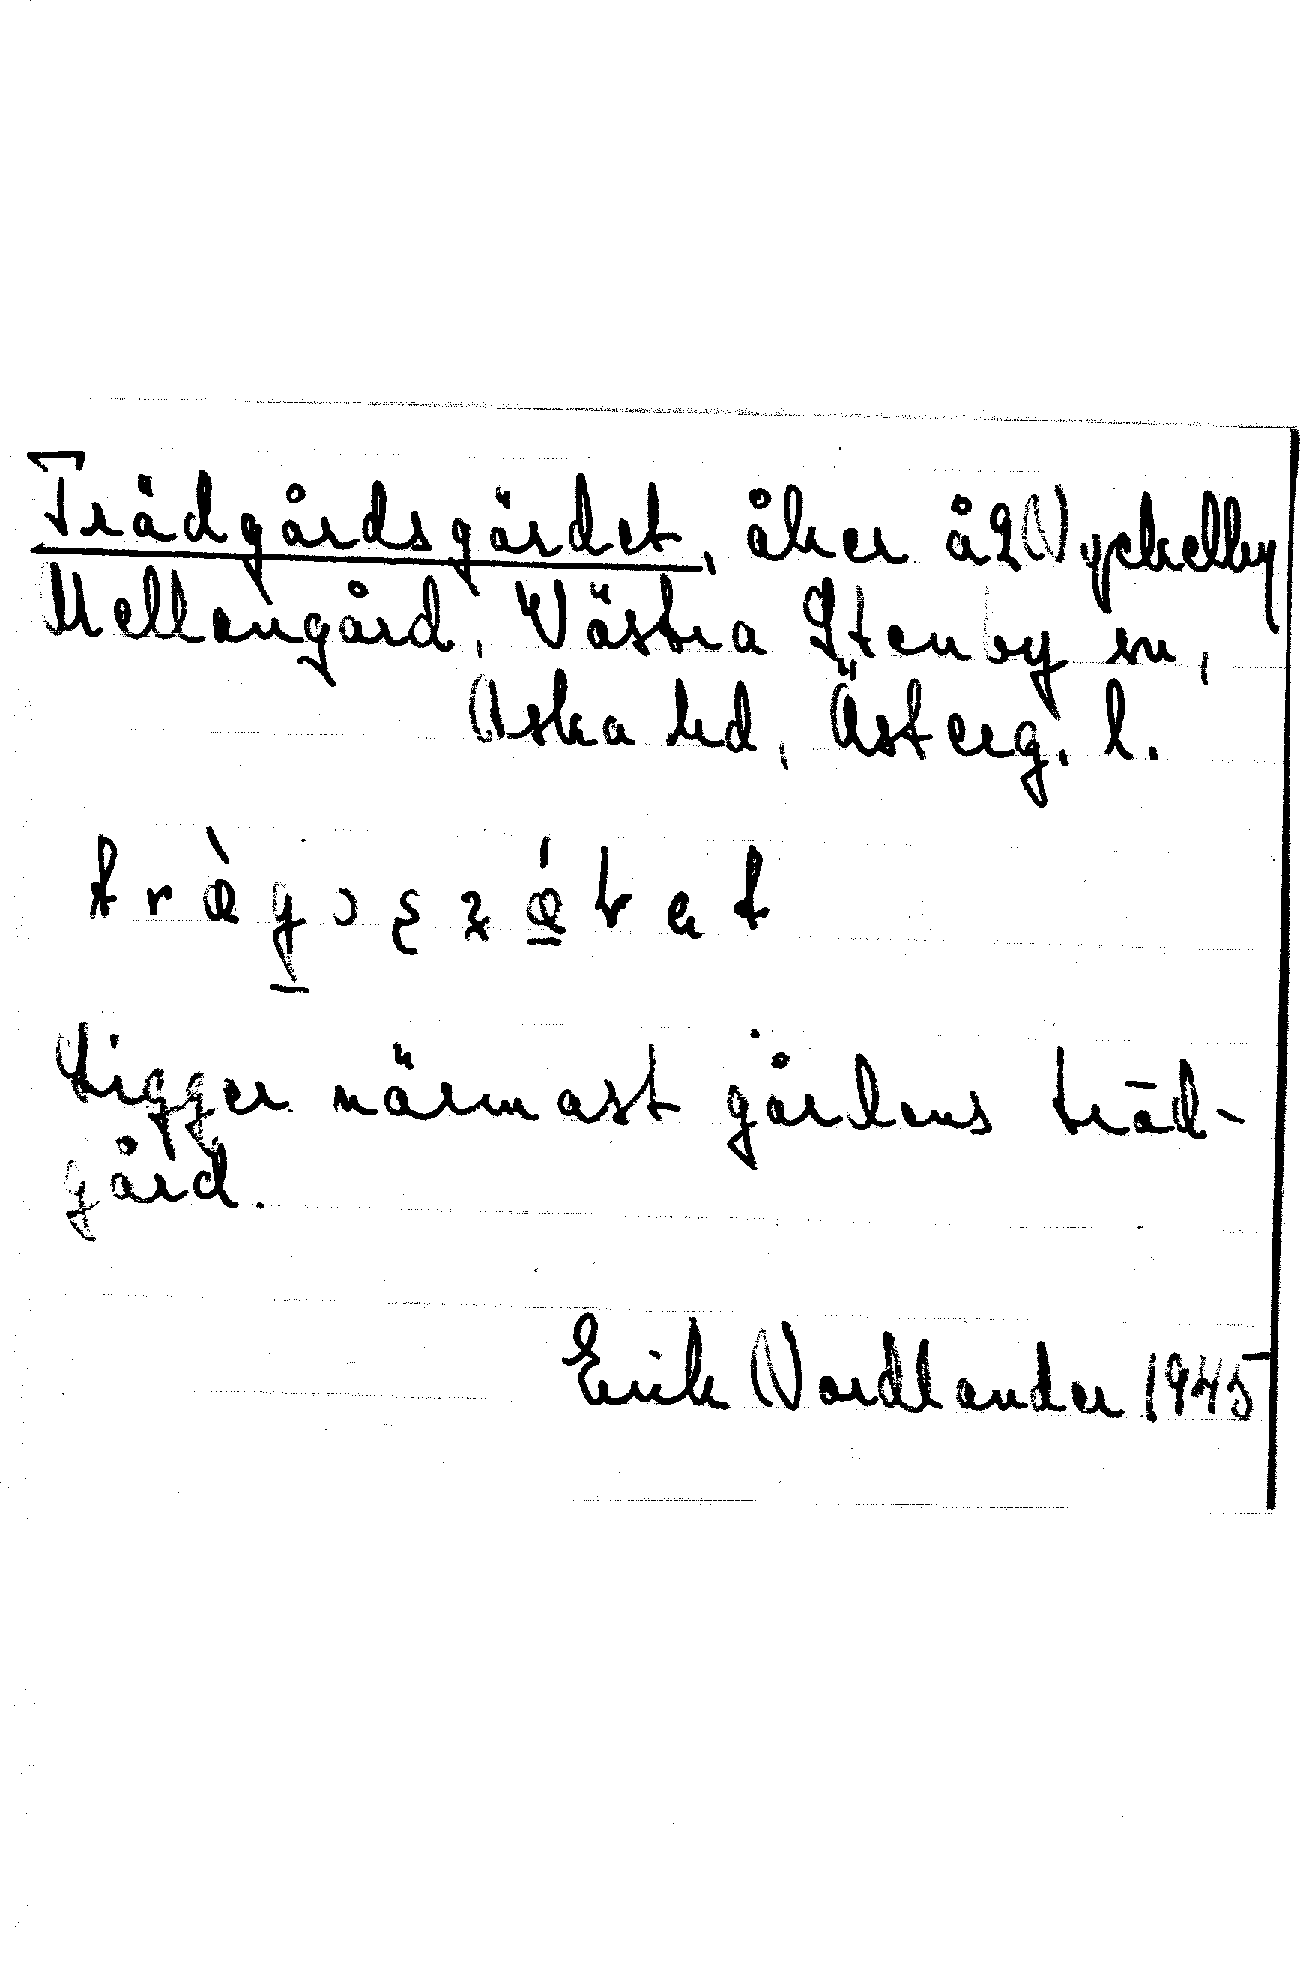 Trädgårdsgärdet, åker å Nyckelby
Mellangård, Västra Stenby sn,
Aska hd, Österg. l.
Ligger närmast gårdens träd-
gård.
Erik Nordlander 1945